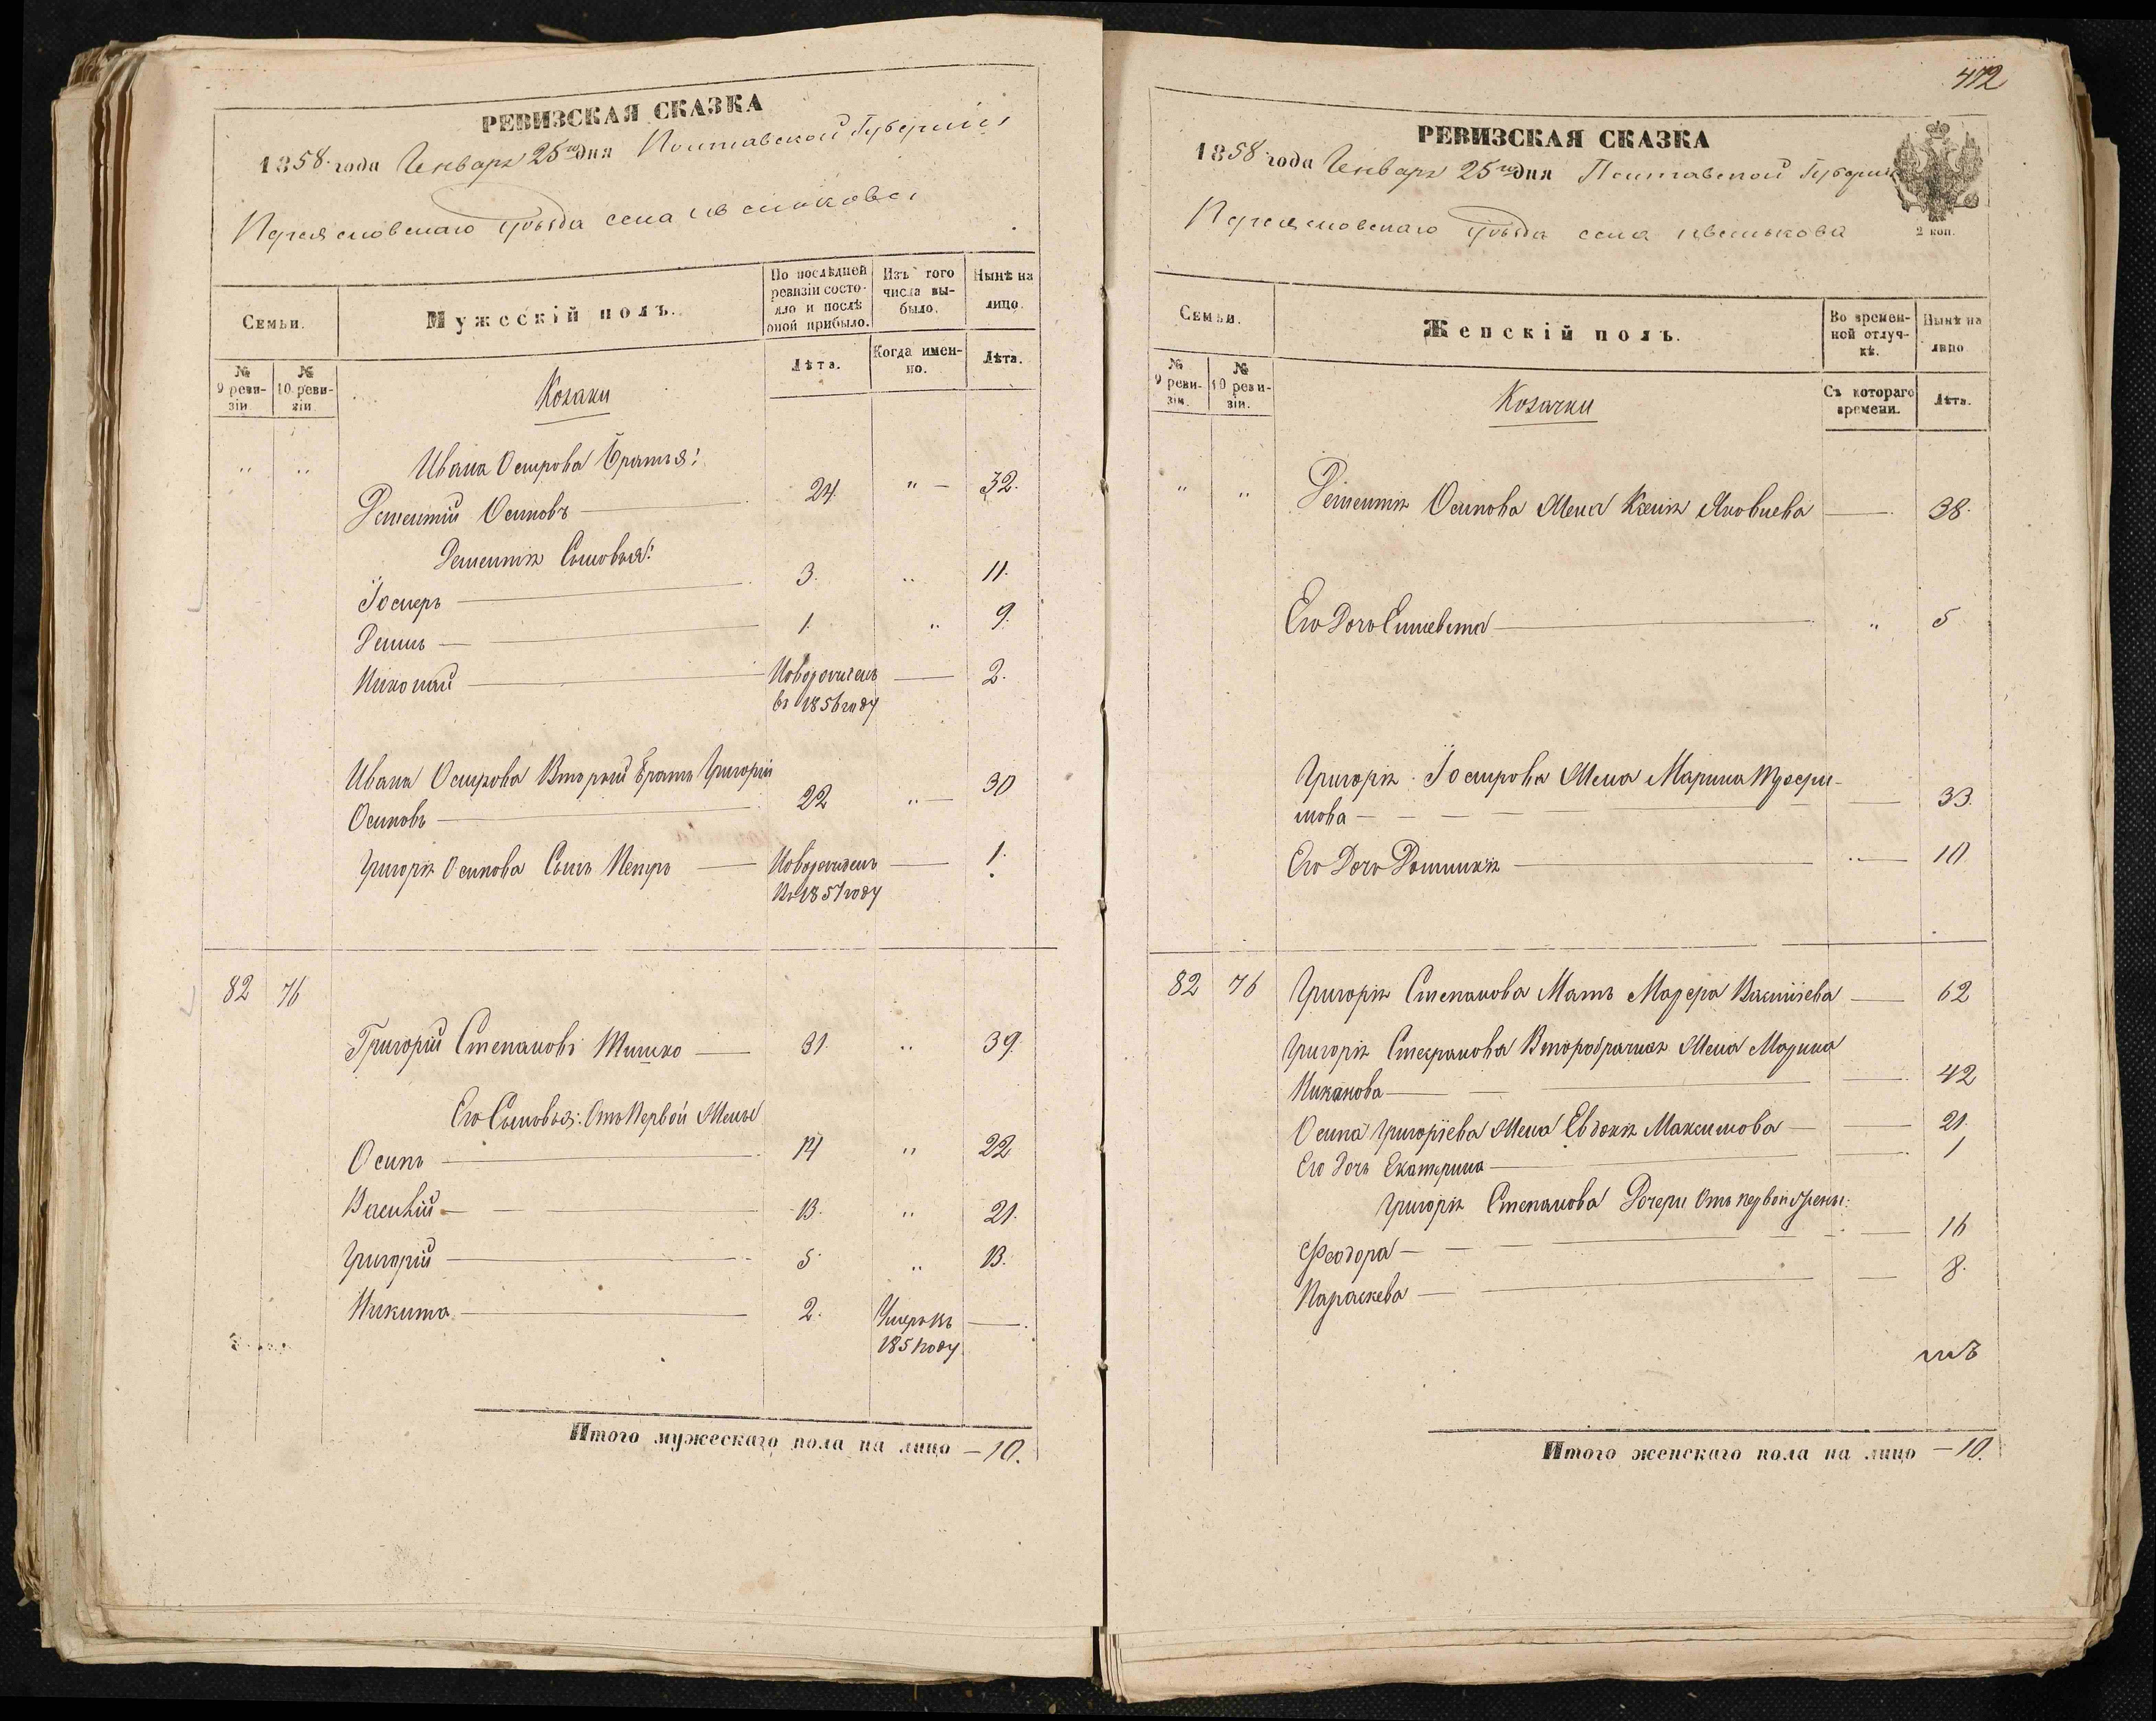 РЕВИЗСКАЯ СКАЗКА
1858 года Генваря 25го дня Полтавской Губернии
Переясловскаго уѣзда села
Семьи.
Мужескій полъ.
По послѣдней ревизіи состояло и послѣ оной прибыло.
Изъ того числа выбыло.
Нынѣ на лицо.
№ 9 ревизіи.
№ 10 ревизіи.
Лѣта.
Когда именно.
Лѣта.
Козаки
" " Ивана Осипова братья:
Дементій Осиповъ — 24. " — 32.
Дементія Сыновья:
3. " 11.
1. " 9.
Николай — Новорожденъ — 2.
въ 1856 году
Ивана Осипова Вторый братъ Григорій
Осиповъ — 22 " — 30
Григорія Осипова Сынъ Петръ — Новорожденъ — 1.
въ 1857 году
82 76
Григорій Степановъ Тишко — 31. " 39.
Его Сыновья: Отъ Первой Жены
Осипъ — 14 " 22
Василій — 13. " 21.
Григорій — 5 " 13.
Никита — 2. Умеръ въ —
185 году
Итого мужескаго пола на лицо — 10.
472
РЕВИЗСКАЯ СКАЗКА
1858 года Генваря 25го дня Полтавской Губерніи
2 коп.
Переясловскаго уѣзда села
Семьи.
Женскій полъ.
Во временной отлучкѣ.
Нынѣ на лицо
№ 9 ревизіи.
№ 10 ревизіи.
Съ котораго времени.
Лѣта.
Козачки
" " Дементія Осипова Жена Ксенія Яковлева — 38.
Его Дочь Елисавета — " 5
Григорія Іосипова Жена Марина Трофи-
мова — 33.
Его Дочь Домникія — " — 10
82 76 Григорія Степанова Мать Марфа Васильева — 62
Григорія Степанова Второбрачная Жена Марина
Ничипова — 42
Осипа Григоріева Жена Евдокія Максимова — 21.
Его Дочь Екатерина — 1
Григорія Степанова Дочери Отъ первой жены:
Феодора — 16
Параскева — 8.
Итого женскаго пола на лицо — 10.